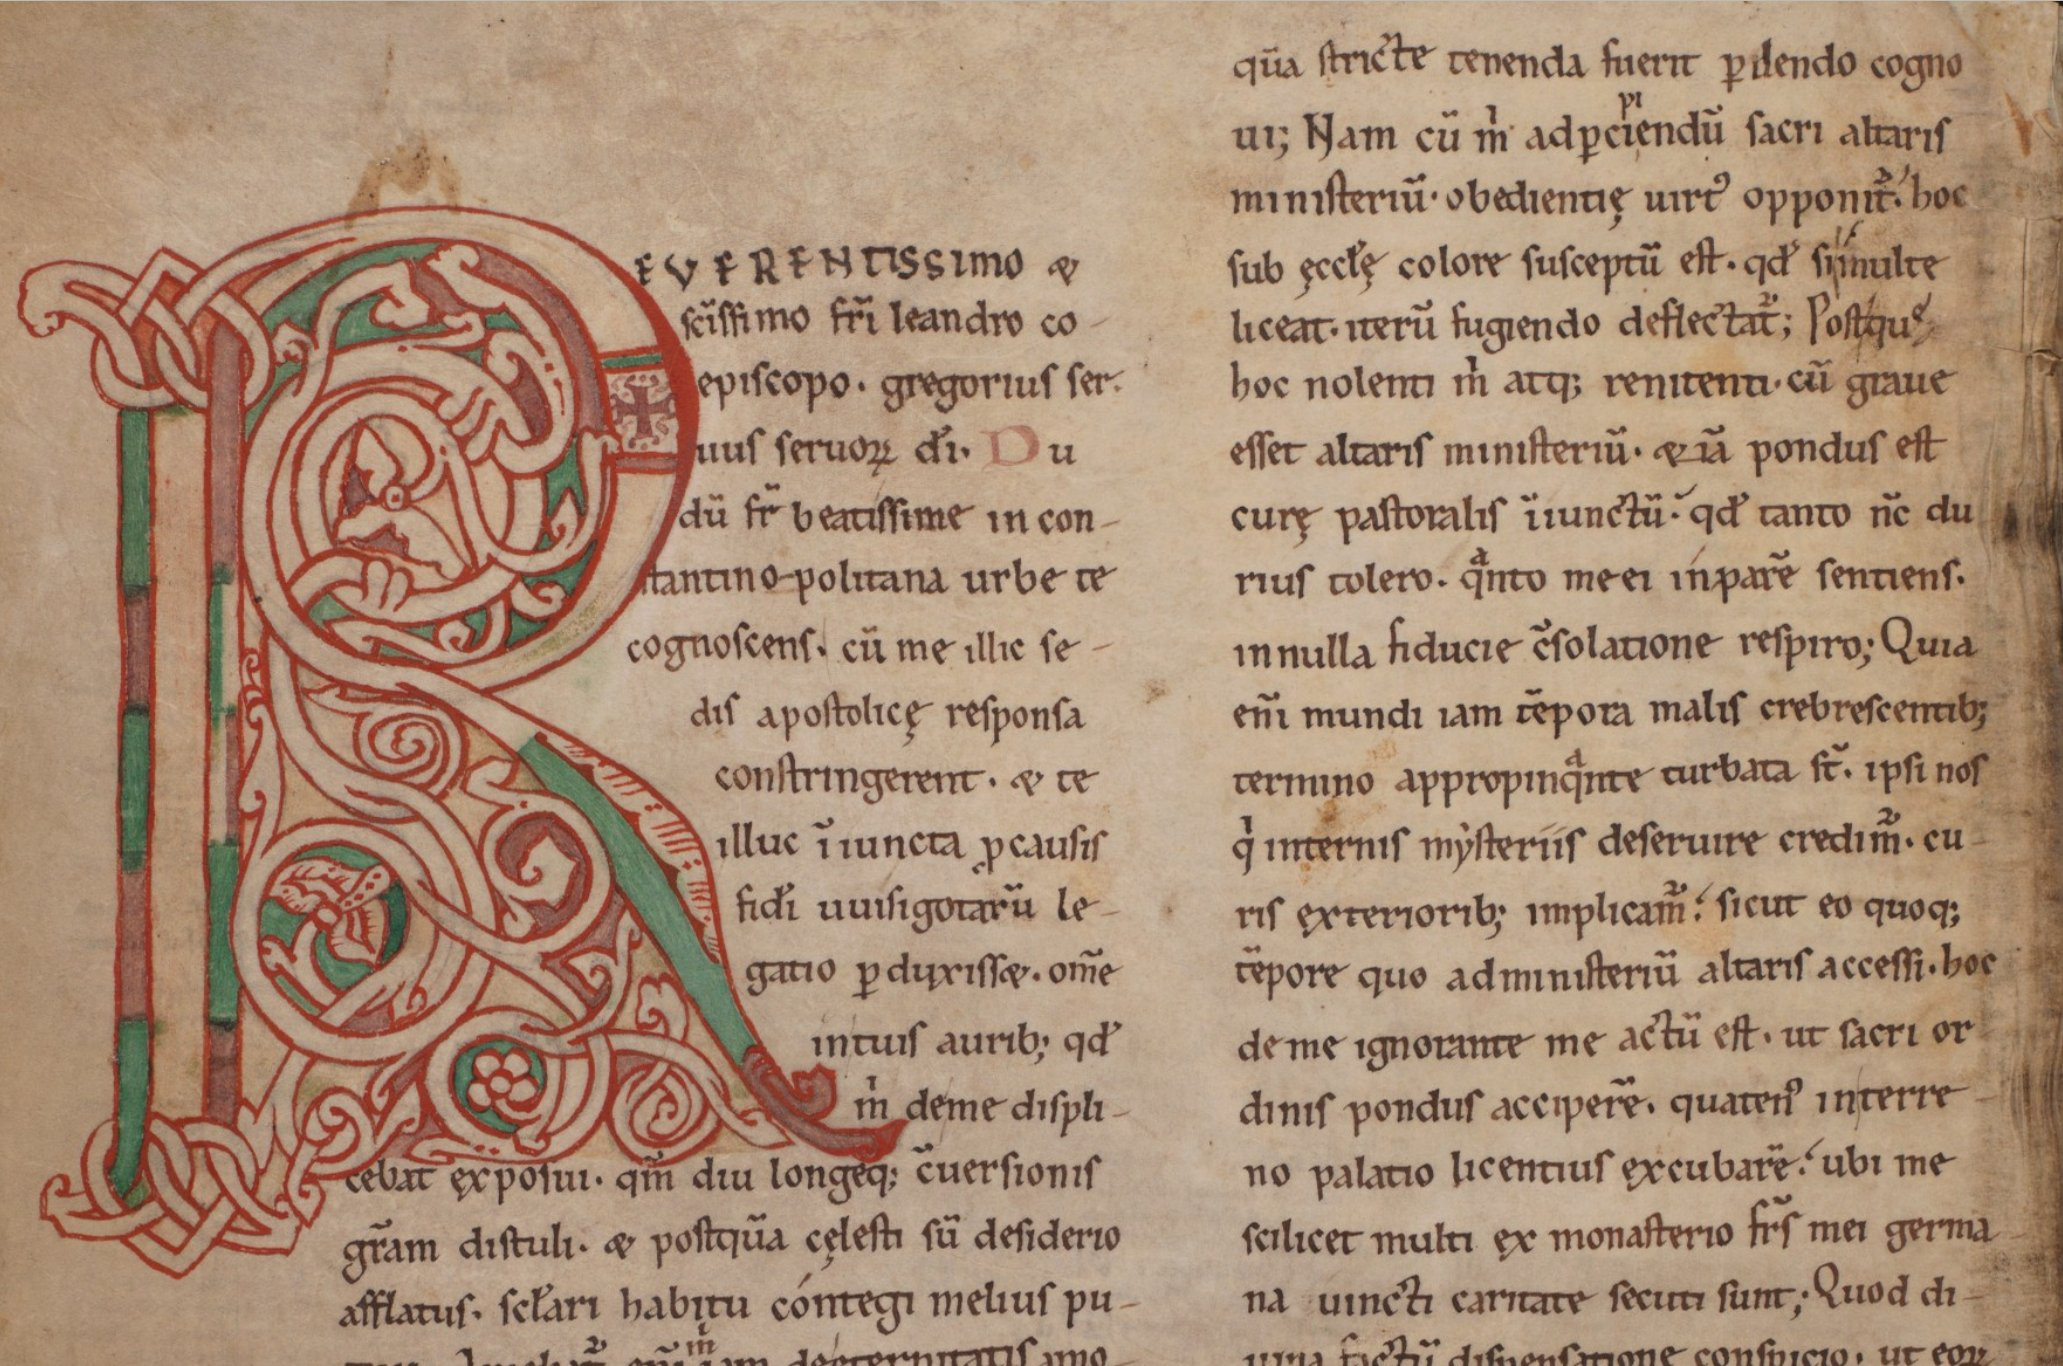 REVERENTISSIMO &
sc̄issimo fr̄i leandro co-
episcopo. gregorius ser-
uus seruoꝝ dī. Du
dū fr̄ beatissime in con-
stantinopolitana urbe te
cognoscens. cū me illic se-
dis apostolicę responsa
constringerent. & te
illuc īiuncta ꝓ causis
fidī uuisigotarū le-
gatio ꝑduxiss&. om̄e
intuis aurib; qd̄
m̍ deme displi-
cebat exposui. qm̄ diu longeq; c̄uersionis
gr̄am distuli. & postquā cęlesti sū desiderio
afflatus. scl̄ari habitu contegi melius pu-
quā stricte tenenda fuerit ꝑdendo cogno
ui; Nam cū m̍ adꝑcipiendū sacri altaris
ministeriū. obedientię uirtꝰ opponit᷑. hoc
sub ęccl̄ę colore susceptū est. qd̄ si inulte
liceat. iterū fugiendo deflectat᷑; Postquā
hoc nolenti m̍ atq; renitenti. cū graue
esset altaris ministeriū. &iā pondus est
curę pastoralis īiunctū. qd̄ tanto nc̄ du
rius tolero. qͣnto me ei inparē sentiens.
in nulla fiducie c̄solatione respiro; Quia
eni̅ mundi iam tēpora malis crebrescentib;
termino appropinqͣnte turbata st̄. ipsi nos
qͥ internis mysteriis deseruire credim᷑. cu-
ris exteriorib; implicam᷑. sicut eo quoq;
tēpore quo ad ministeriū altaris accessi. hoc
de me ignorante me actū est. ut sacri or
dinis pondus acciperē. quatenꝰ interre-
no palatio licentius excubarē. ubi me
scilicet multi ex monasterio fr̄s mei germa
na uincti caritate secuti sunt; Quod di-
uina factū dispensatione conspicio. ut eoꝝ